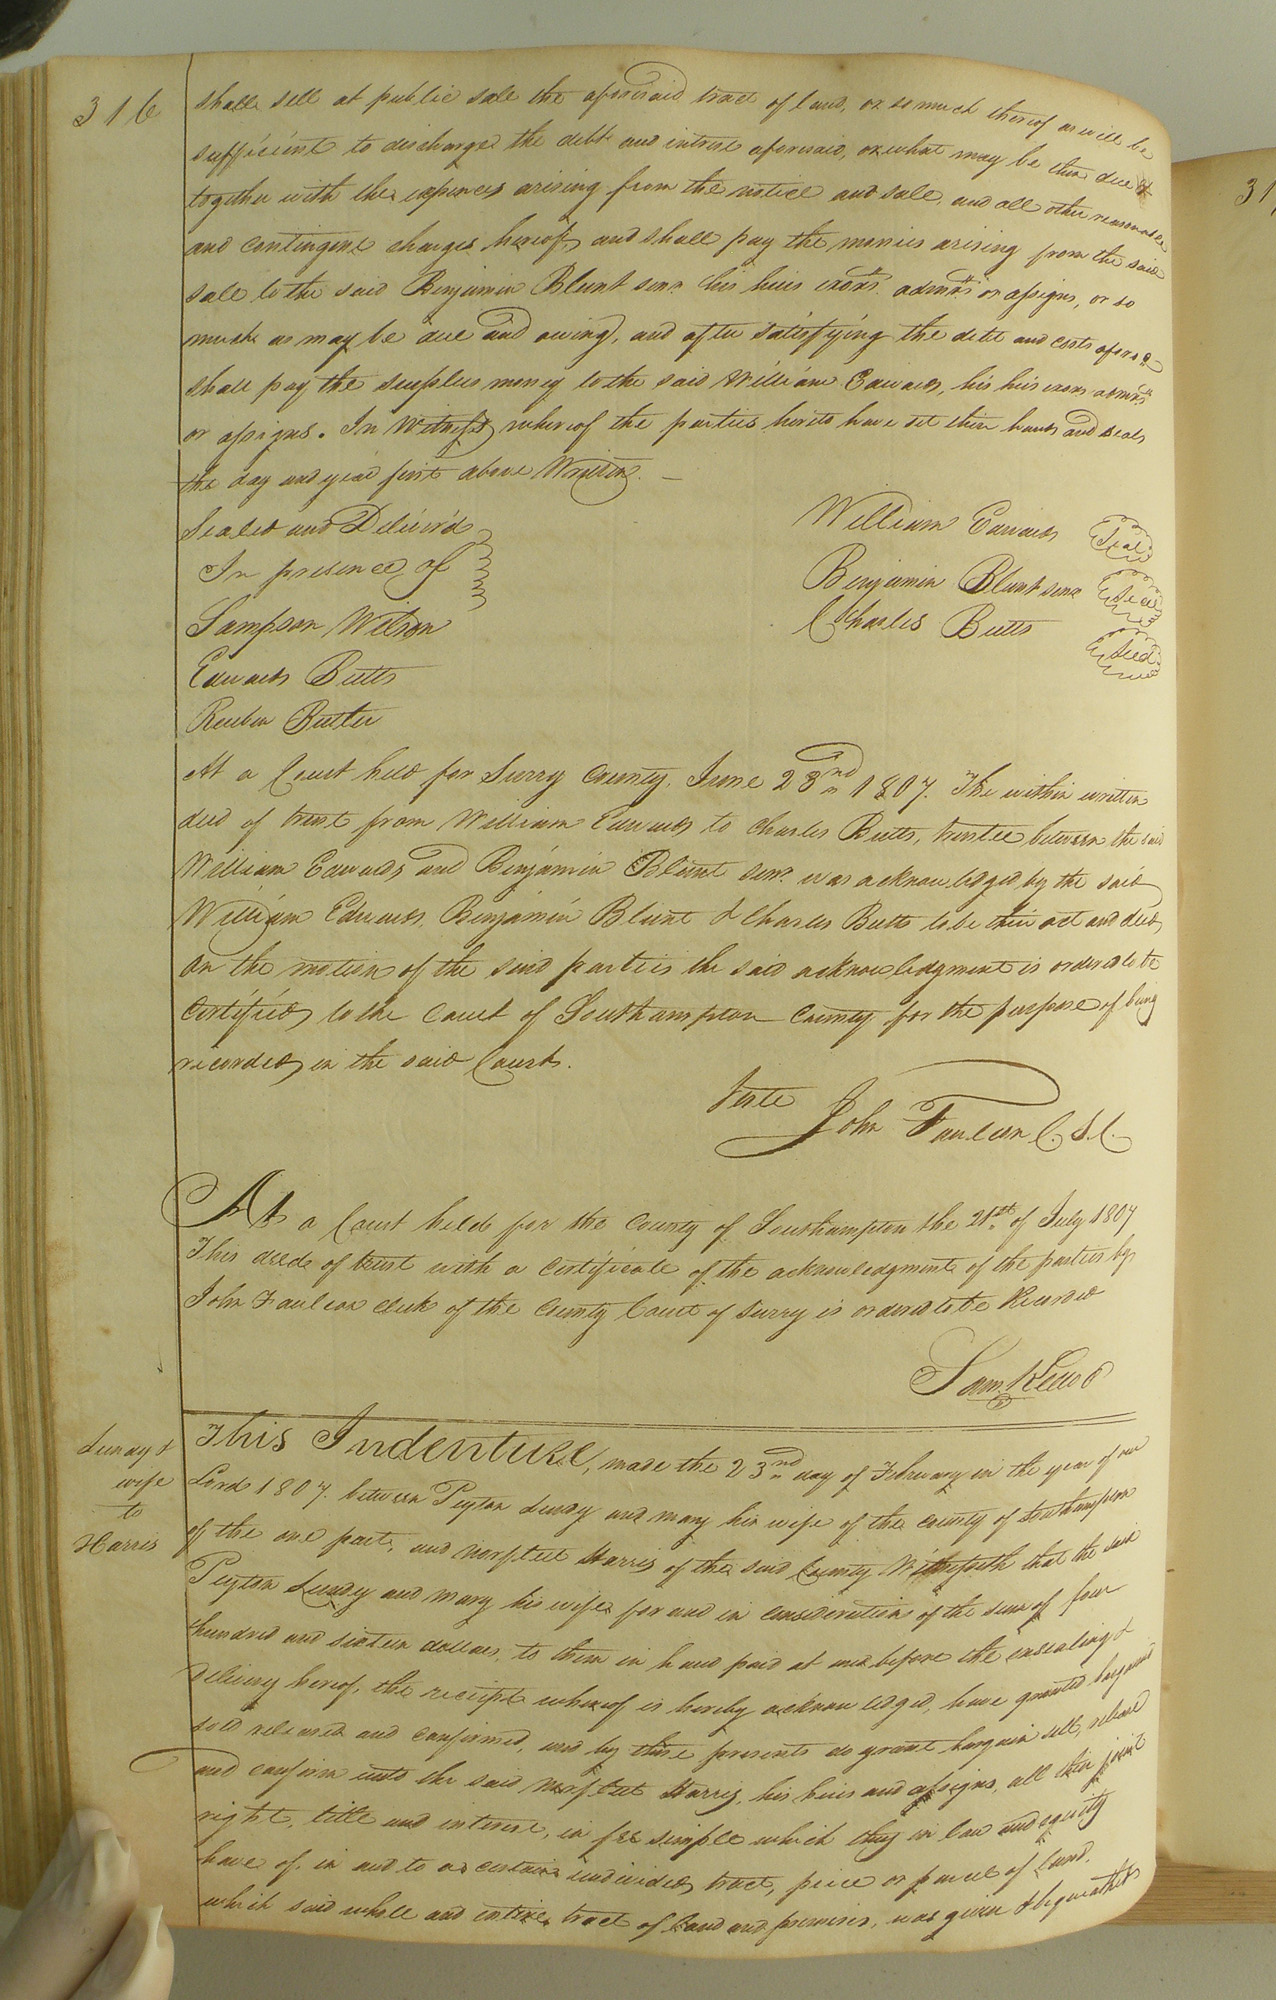 316
shall sell at public sale the aforesaid tract of land, or so much thereof as will be
sufficient to discharge the debt and intrest aforesaid, or what may be then due &
together with the expences arising from the notice and sale, and all other reasonable
and contingent charges hereof, and shall pay the monies arising from the said
sale to the said Benjamin Blunt senr. his heirs exors. admrs or assigns, or so
much as may be due and owing, and after satisfying the debt and costs afores'd
shall pay the surplus money to the said William Edwards, his heirs exors admrs
or assigns. In Witness whereof the parties hereto have set their hands and seals
the day and year first above Written. —
Sealed and Deliver'd
In presence of
Sampson Wilson
Edwards Butts
Reuben Butler
William Edwards Seal
Benjamin Blunt senr Seal
Charles Butts Seal
At a Court held for Surry County. June 23nd 1807. The within written
deed of trust from William Edwards to Charles Butts, trustee between the said
William Edwards and Benjamin Blunt senr. was acknowledged by the said
William Edwards, Benjamin Blunt & Charles Butts to be their act and deed
On the motion of the said parties the said acknowledgment is ordered to be
Certified to the Court of Southampton County for the purpose of being
recorded in the said Court.
Teste John Faulcon C. S. C.
At a Court held for the County of Southampton the 21st of July 1807
This deed of trust with a Certificate of the acknowledgment of the parties by
John Faulcon clerk of the County Court of Surry is ordered to be Recorded
Sam. Kello
Lundy &
wife
to
Harris
This Indenture, made the 23nd day of February in the year of our
Lord 1807. between Peyton Lundy and Mary his wife of the County of Southampton
of the one part, and Norfleet Harris of the said County Witnesseth that the said
Peyton Lundy and Mary his wife for and in consideration of the sum of four
hundred and sixteen dollars, to them in hand paid at and before the ensealing &
delivery hereof, the receipt whereof is hereby acknowledged, have granted bargained
sold released and confirmed, and by these presents do grant bargain sell, release
and confirm unto the said Norfleet Harris, his heirs and assigns, all their joint
right, title and interest, in fee simple which they in law and equity
have of, in and to a certain undivided tract, peice or parcel of land.
which said whole and entire tract of land and premises, was given & bequeathed